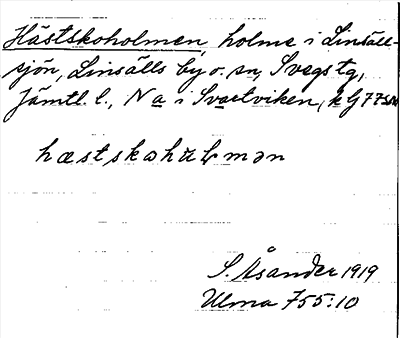 Hästskoholmen, holme i Linsäll-
sjön, Linsälls by o. sn, Svegs tg,
Jämtl. l., Na i Svartviken, k G 77
hæstskəhɯɫmən
S. Åsander 1919
Ulma 755:10